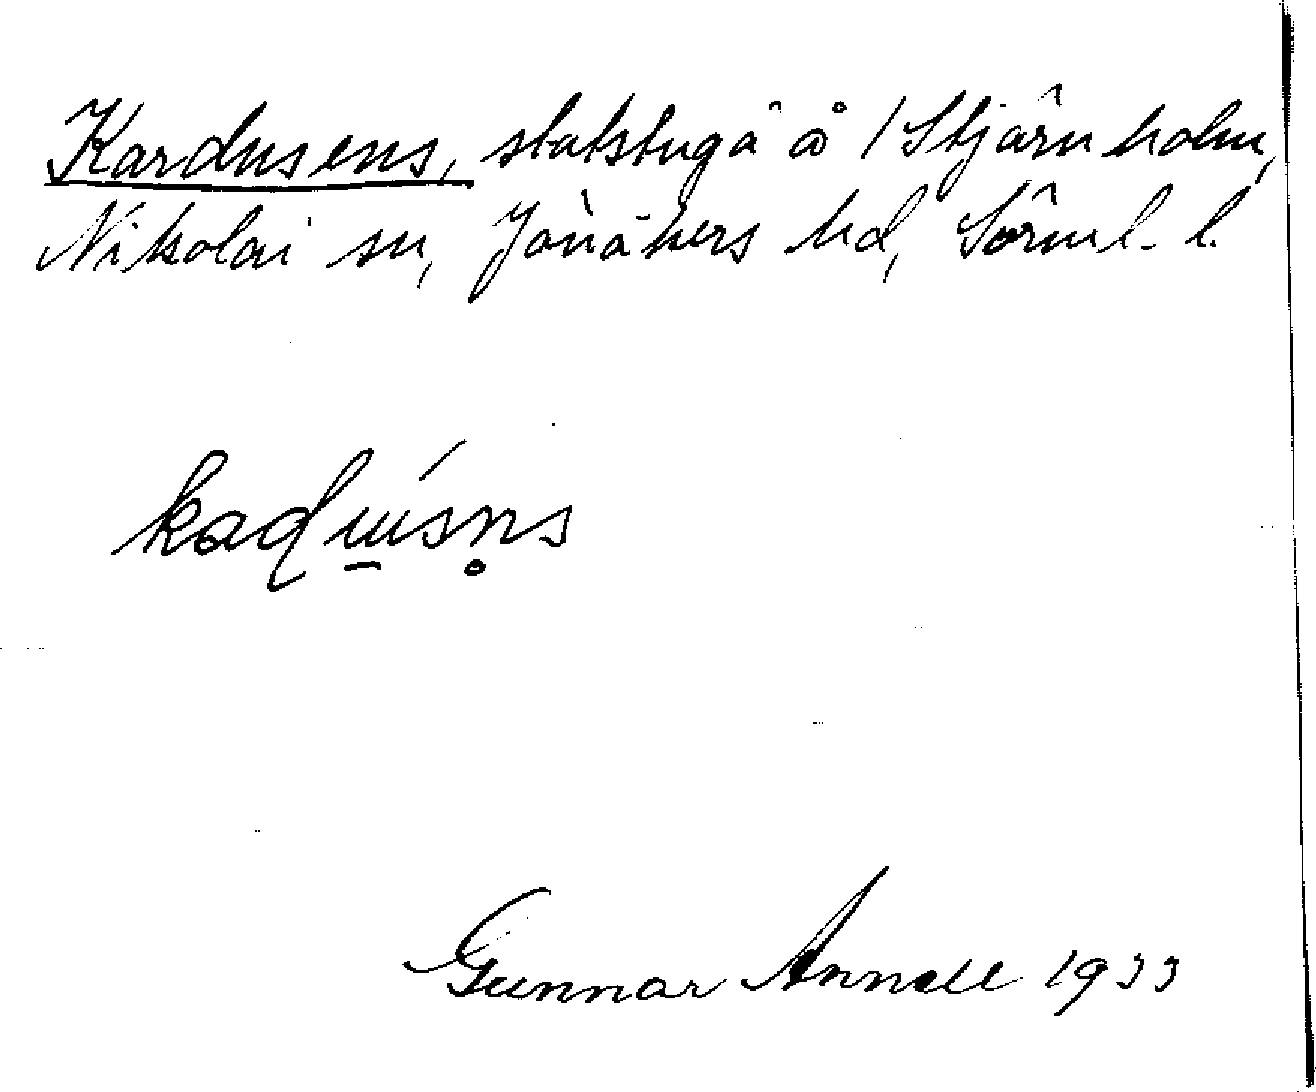 Kardusens, statstuga å / Stjärnholm,
Nikolai sn, Jönåkers hd, Sörml. l.
Gunnar Annell 1933